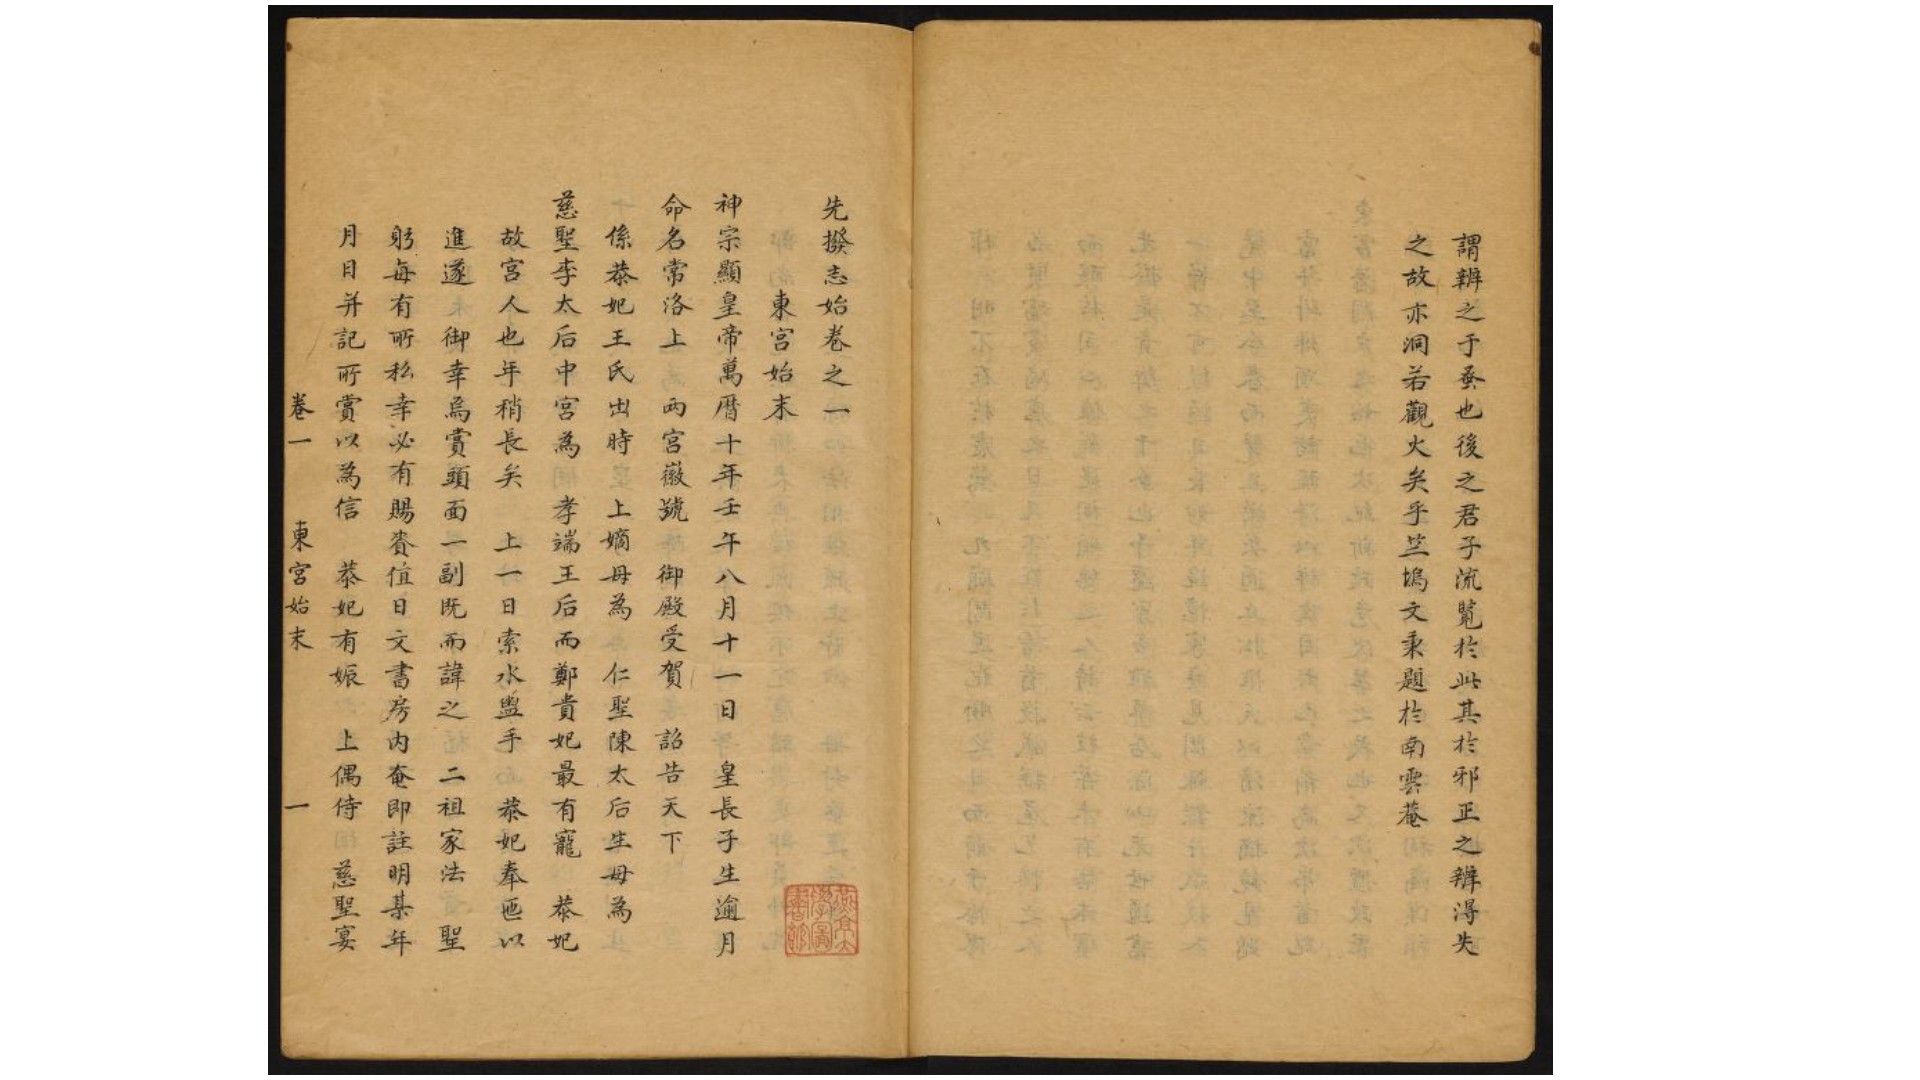 謂辨之于蚤也後之君子流覽於此其於邪正之辨得失
之故亦洞若觀火矣乎竺塢文秉題於南雲菴
先撥志始卷之一
東宮始末
神宗顯皇帝萬曆十年壬午八月十一日皇長子生逾月
命名常洛上　兩宮徽號　御殿受賀　詔告天下
係恭妃王氏出時　上嫡母為　仁聖陳太后生母為
慈聖李太后中宮為　孝端王后而鄭貴妃最有寵　恭妃
故宮人也年稍長矣　上一日索水盥手　恭妃奉匜以
進遂　御幸焉賞頭面一副既而諱之　二祖家法聖
躬每有所私幸必有賜賚值日文書房內奄即註明某年
月日并記所賞以為信　恭妃有娠　上偶侍　慈聖宴
卷一　東宮始末　一
燕京大學圖書館